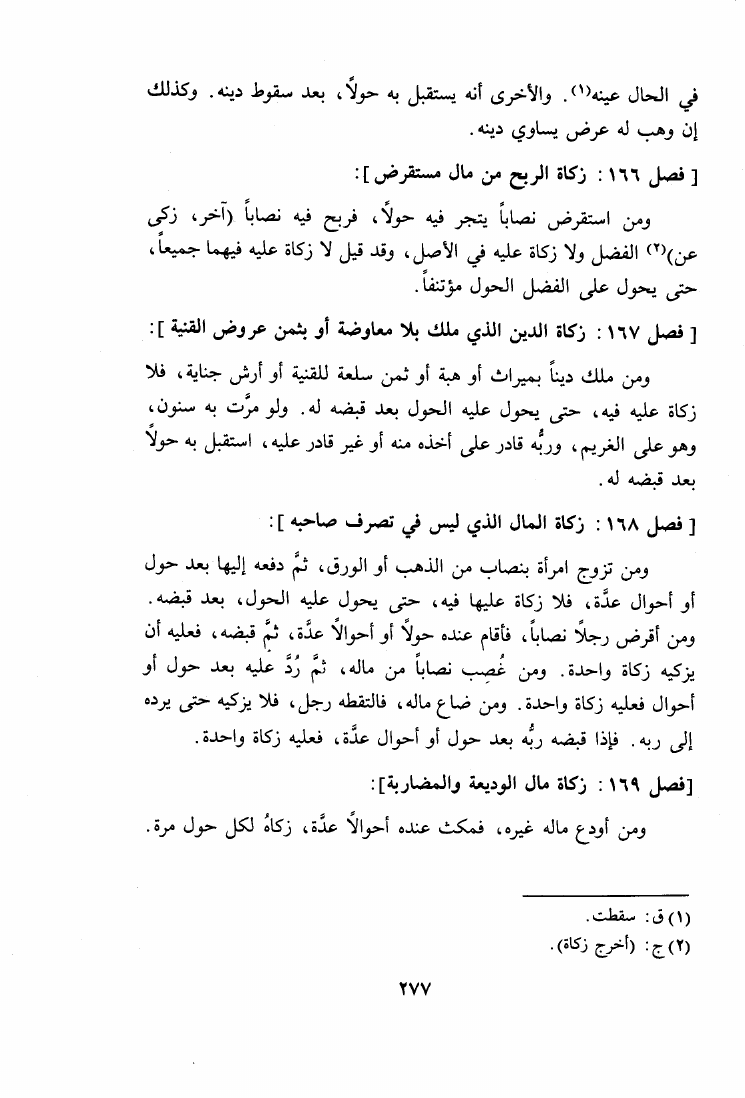 في الحال عينه(١). والأخرى أنه يستقبل به حولاً، بعد سقوط دينه. وكذلك
إن وهب له عرض يساوي دينه.
[ فصل ١٦٦ : زكاة الربح من مال مستقرض ]:
ومن استقرض نصاباً يتجر فيه حولاً، فربح فيه نصاباً (آخر، زكى
عن)(٢) الفضل ولا زكاة عليه في الأصل، وقد قيل لا زكاة عليه فيهما جميعاً،
حتى يحول على الفضل الحول مؤتنفاً.
[ فصل ١٦٧ : زكاة الدين الذي ملك بلا معاوضة أو بثمن عروض القنية ]:
ومن ملك ديناً بميراث أو هبة أو ثمن سلعة للقنية أو أرش جناية، فلا
زكاة عليه فيه، حتى يحول عليه الحول بعد قبضه له. ولو مرَّت به سنون،
وهو على الغريم، وربُّه قادر على أخذه منه أو غير قادر عليه، استقبل به حولاً
بعد قبضه له.
[ فصل ١٦٨ : زكاة المال الذي ليس في تصرف صاحبه ]:
ومن تزوج امرأة بنصاب من الذهب أو الورق، ثمَّ دفعه إليها بعد حول
أو أحوال عدَّة، فلا زكاة عليها فيه، حتى يحول عليه الحول، بعد قبضه.
ومن أقرض رجلاً نصاباً، فأقام عنده حولاً أو أحوالاً عدَّة، ثمَّ قبضه، فعليه أن
يزكيه زكاة واحدة. ومن غُصِب نصاباً من ماله، ثمَّ رُدَّ عليه بعد حول أو
أحوال فعليه زكاة واحدة. ومن ضاع ماله، فالتقطه رجل، فلا يزكيه حتى يرده
إلى ربه. فإذا قبضه ربُّه بعد حول أو أحوال عدَّة، فعليه زكاة واحدة.
[فصل ١٦٩ : زكاة مال الوديعة والمضاربة]:
ومن أودع ماله غيره، فمكث عنده أحوالاً عدَّة، زكاهُ لكل حول مرة.
(١) ق: سقطت.
(٢) ج: (أخرج زكاة).
٢٧٧